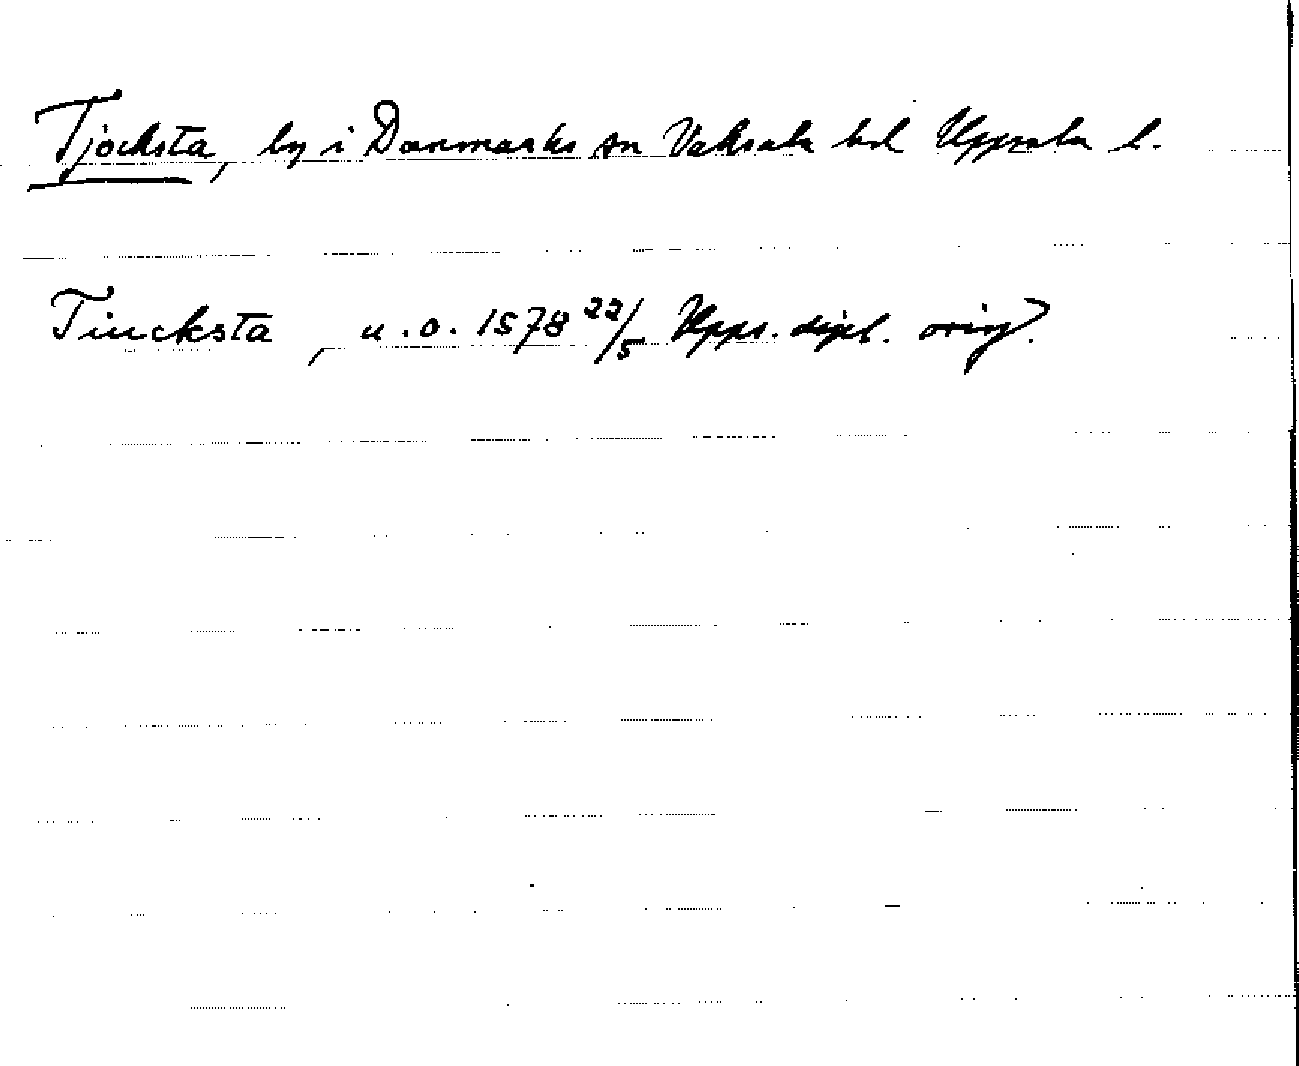 Tjocksta, by i Danmarks sn Vaksala hd Uppsala l.
Tiucksta, u.o. 1578 22/5 Upps. dipl. orig.